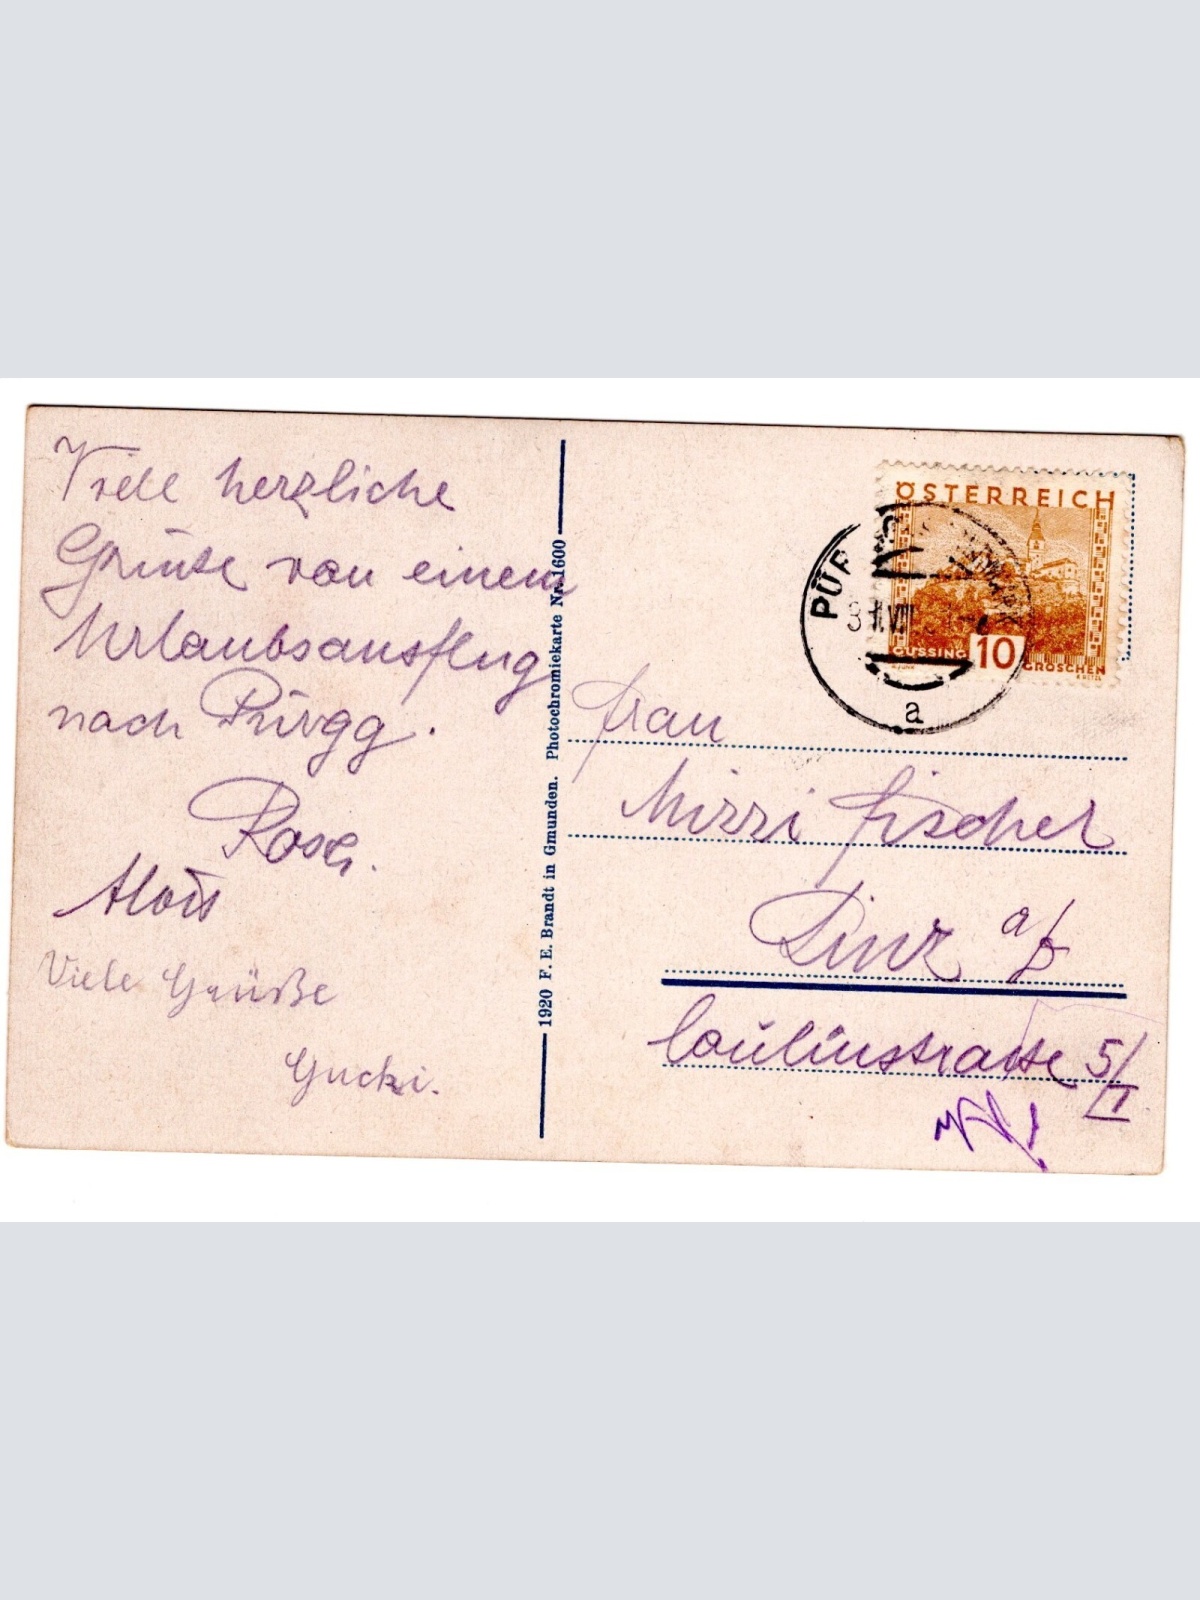 Viele herzliche
Grüße von einem
Urlaubsausflug
nach Pürgg.
Rosa.
Alois
Viele Grüße
Gucki.
1920 F. E. Brandt in Gmunden. Photochromiekarte Nr. 1600
ÖSTERREICH
GÜSSING 10 GROSCHEN
PÜR
a
Frau
Mizzi Fischer
Linz a/D
5/I